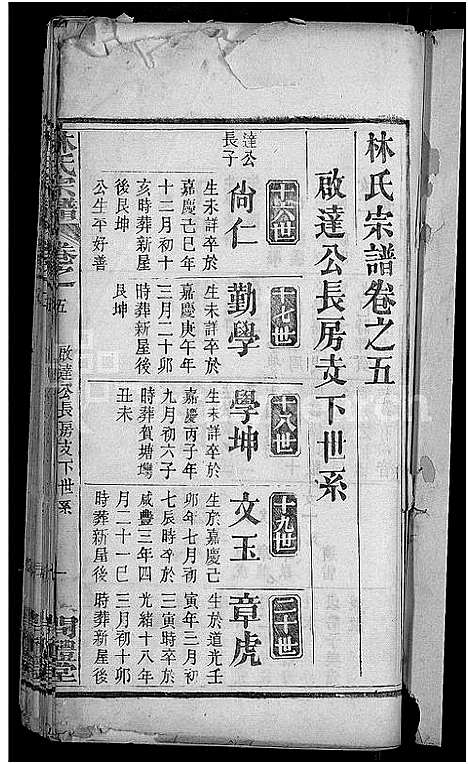 林氏宗譜卷之五
啟達公長房支下世系
十六世
達公
長子
尚仁
生未詳卒於
嘉慶己巳年
十二月初十
亥時葬新屋
後艮坤
公生平好善
十七世
勤學
生未詳卒於
嘉慶庚午年
三月二十卯
時葬新屋後
艮坤
十八世
學坤
生未詳卒於
嘉慶丙子年
九月初六子
時葬賀塘塆
丑未
十九世
文玉
生於嘉慶己
卯年七月初
七辰時卒於
咸豐三年四
月二十一巳
時葬新屋後
二十世
章虎
生於道光壬
寅年二月初
三寅時卒於
光緒十八年
三月初十卯
時葬新屋後
林氏宗譜
卷之五
啟達公長房支下世系
一